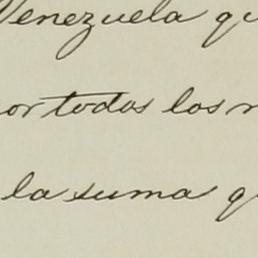 Venezuela qu
por todos los
la suma q